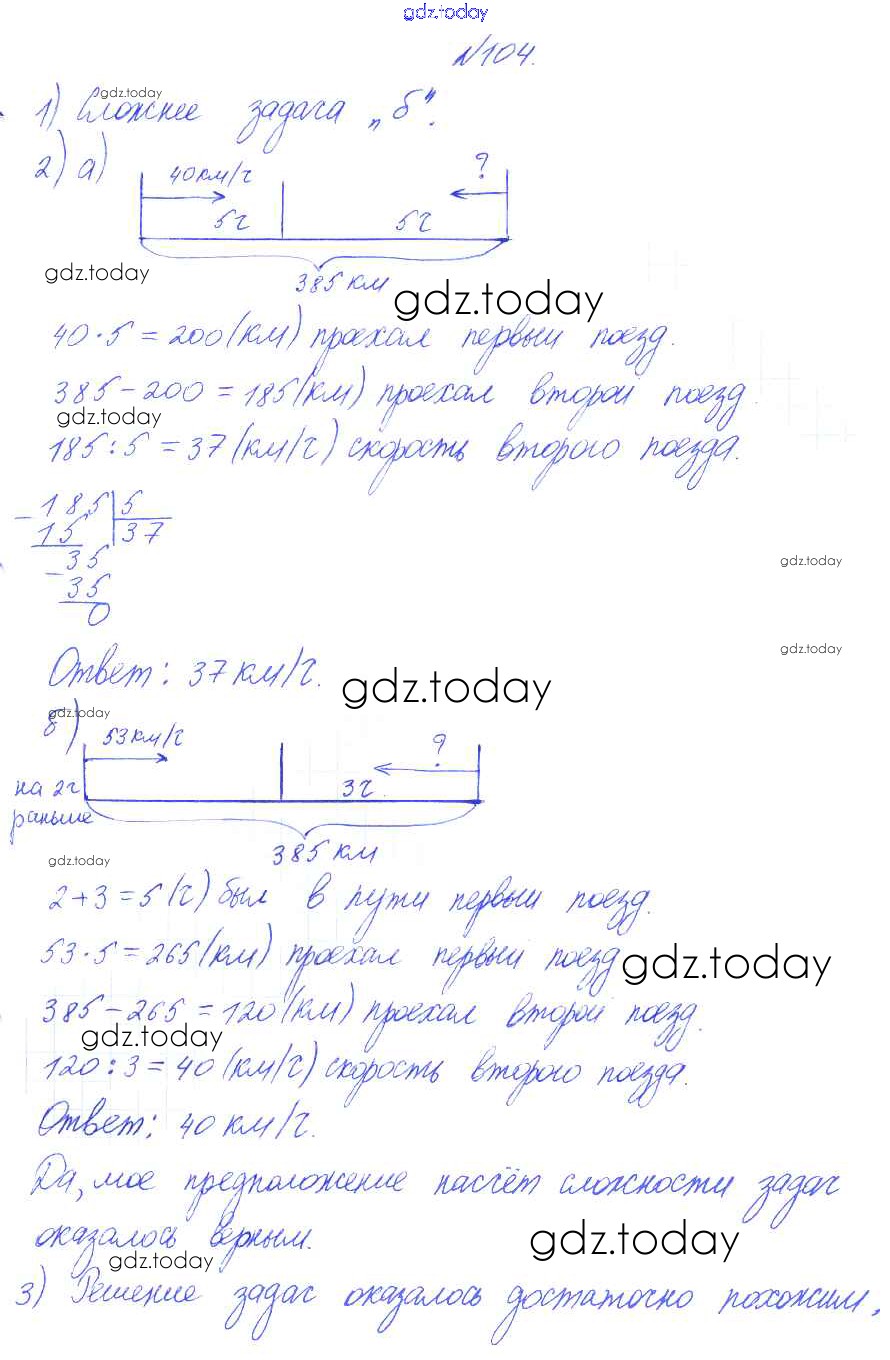 gdz.today
№104.
gdz.today
1) Сложнее задача „б".
2) а)
40км/ч ?
5ч 5ч
gdz.today
385 км
gdz.today
40·5=200(км) проехал первый поезд.
385-200=185(км) проехал второй поезд
gdz.today
185:5=37(км/ч) скорость второго поезда.
-185|5
15 37
-35
35
0
gdz.today
gdz.today
Ответ: 37 км/ч.
gdz.today
gdz.today
б)
53км/ч ?
на 2ч 3ч
раньше
385 км
gdz.today
2+3=5(ч) был в пути первый поезд.
53·5=265(км) проехал первый поезд
gdz.today
385-265=120(км) проехал второй поезд.
gdz.today
120:3=40(км/ч) скорость второго поезда.
Ответ: 40 км/ч.
Да, мое предположение насчёт сложности задач
оказалось верным.
gdz.today
gdz.today
3) Решение задач оказалось достаточно похожим,